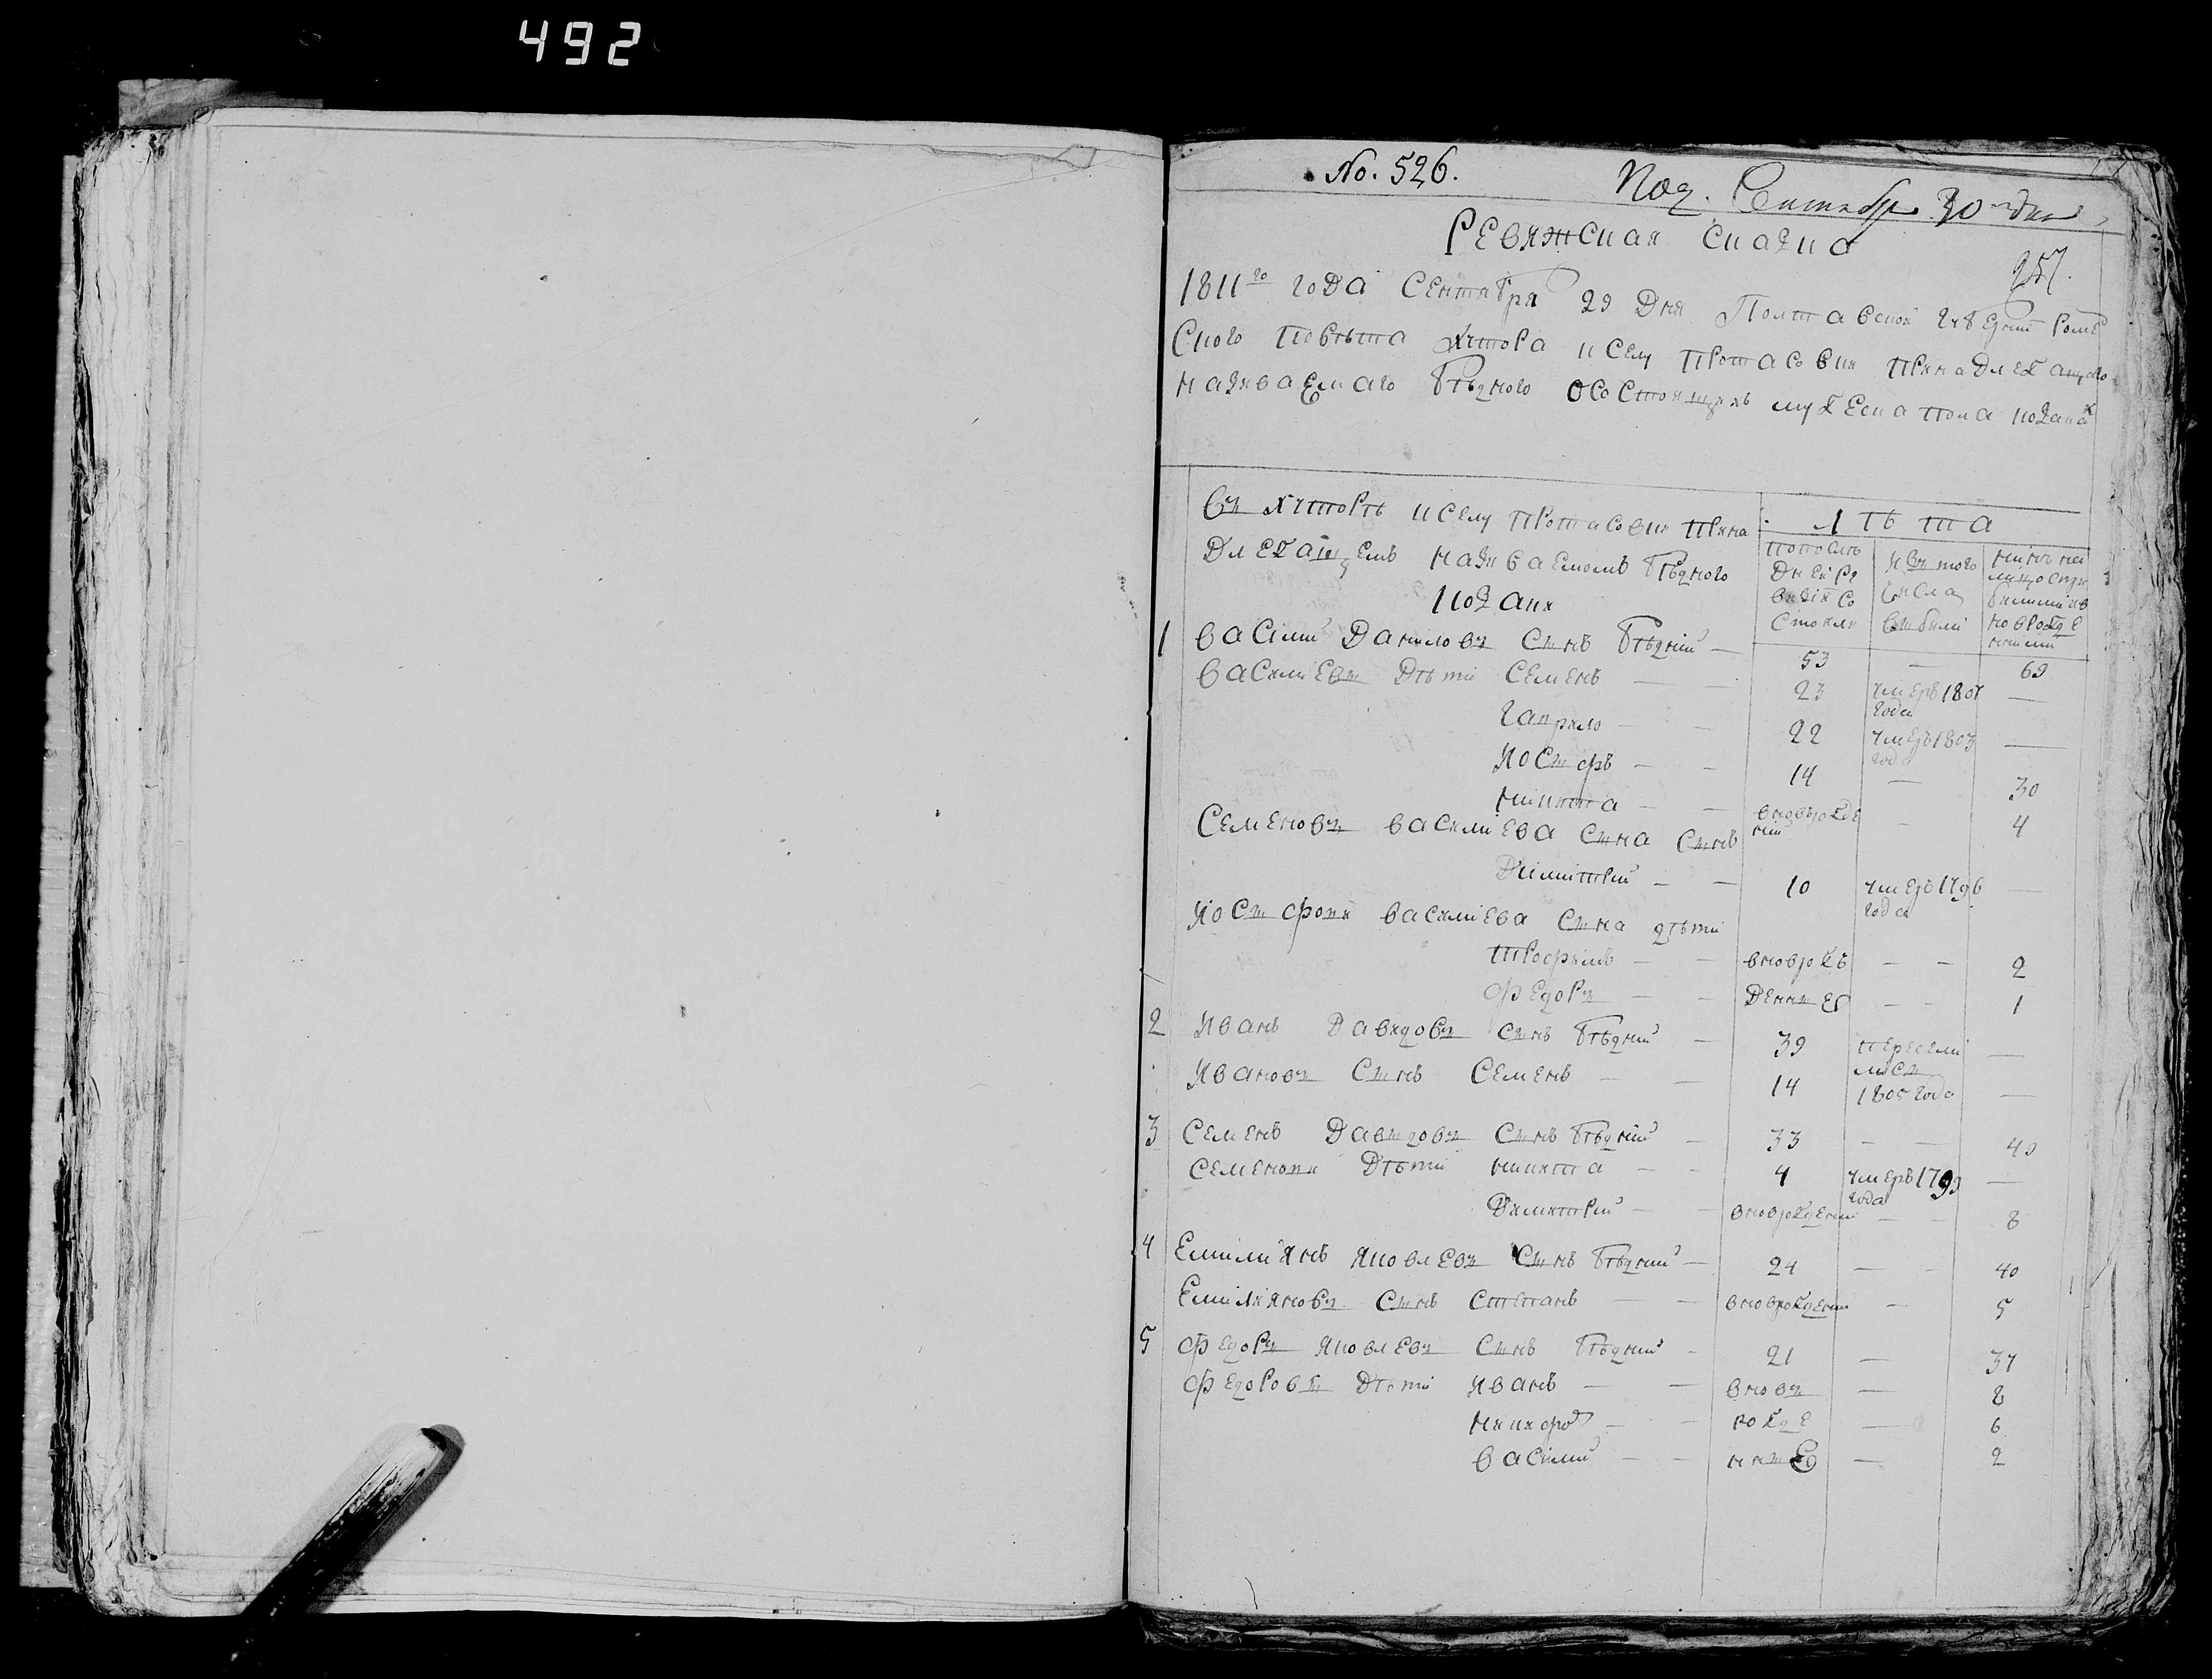 492
No. 526.
Под. Сентября 30 дня
257.
РЕВИЖСКАЯ СКАЗКА
1811го года Сентября 29 Дня Полтавской губернии Роме
Ского повѣта хутора к селу Протасовки принадлежащого
называемаго Бѣдного о состоящихъ мужеска пола козака
Въ хуторѣ к селу Протасовки прина
длежащемъ называемомъ Бѣдного
козаки
Лѣта
по послѣ
дней ре
визіи со
стояли
изъ того
числа
выбыли
нинѣ на
лицо
новрожде
1 Василий Даниловъ сынъ Бѣдний — 53 — 69
Василиевы дѣти Семенъ — — 23 умеръ 1807 года —
Гаврило — — 22 умеръ 1803 года —
Иосифъ — — 14 — 30
Никита — — вновьрожде ний — 4
Семеновъ Василиева сына сынъ
Димитрий — — 10 умеръ 1796 года —
Иосифови Василиева сына дѣти
Трофимъ — — вноврож — — 2
Федоръ — — денные — — 1
2 Иванъ Давидовъ сынъ Бѣдний — 39 переселилис —
Ивановъ сынъ Семенъ — — 14 1805 года —
3 Семенъ Давыдовъ сынъ Бѣдний — 33 — — 49
Семенови дѣти Никита — — 4 умеръ 1799 года —
Димитрий — — вноврожденний — — 8
4 Емилиянъ Яковлевъ сынъ Бѣдний — 24 — — 40
Емилияновъ сынъ Степанъ — — вноврожденний — 5
5 Федоръ Яковлевъ сынъ Бѣдний — 21 — 37
Федоровы дѣти Иванъ — — вновъ — 8
Никифор — — рожде — 6
Василий — — нные — 2